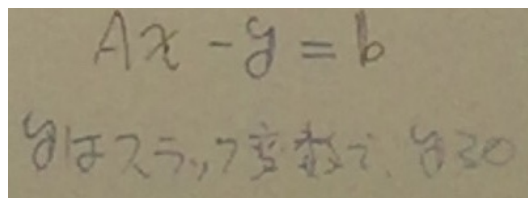 Ax - y = b
yはスラック変数で、y≧0